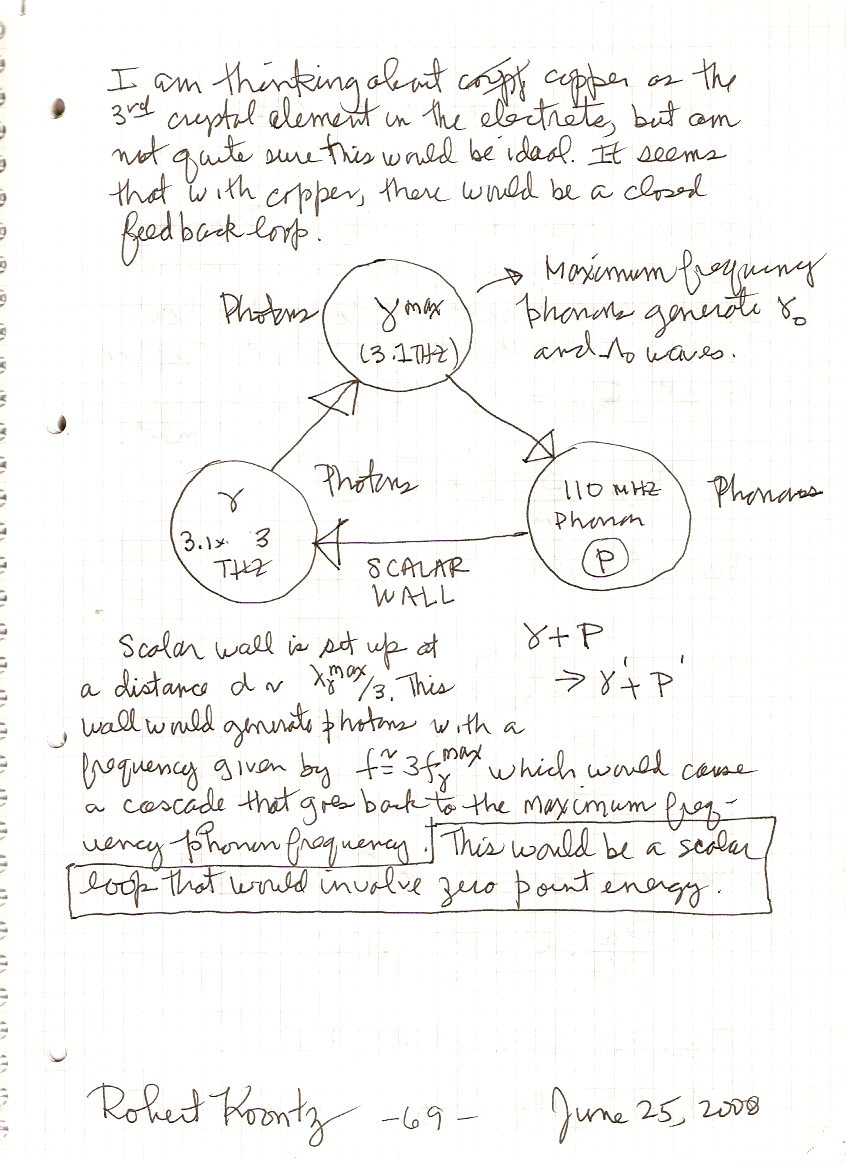 I am thinking about copper as the
3rd crystal element in the electrets, but am
not quite sure this would be ideal. It seems
that with copper, there would be a closed
feedback loop.
Photons
γ max
(3.1 THz)
→ Maximum frequency
phonons generate γ₀
and waves.
γ
3.1 x 3
THz
Photons
110 MHz
Phonon
P
Phonons
SCALAR
WALL
Scalar wall is set up at
a distance d ~ λγmax/3. This
wall would generate photons with a
frequency given by f ≅ 3fγmax which would cause
a cascade that goes back to the maximum freq-
uency phonon frequency. This would be a scalar
loop that would involve zero point energy.
γ + P
→ γ' + P'
Robert Koontz -69- June 25, 2008